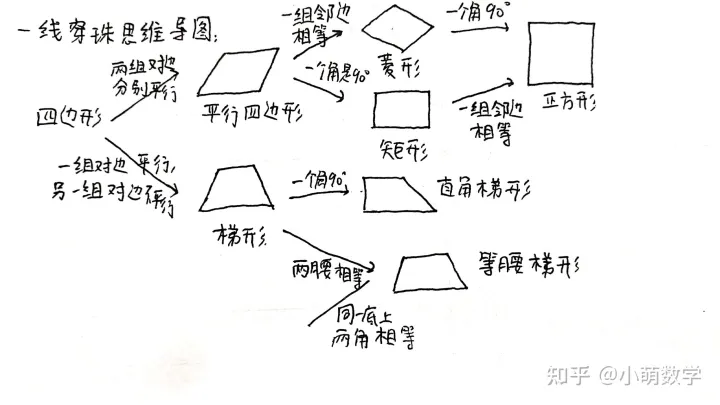 一线穿珠思维导图:
两组对边
分别平行
四边形
平行四边形
一组邻边
相等
菱形
一个角90°
一个角是90°
矩形
一组邻边
相等
正方形
一组对边平行,
另一组对边不平行
梯形
一个角90°
直角梯形
两腰相等
等腰梯形
同一底上
两角相等
知乎 @小萌数学